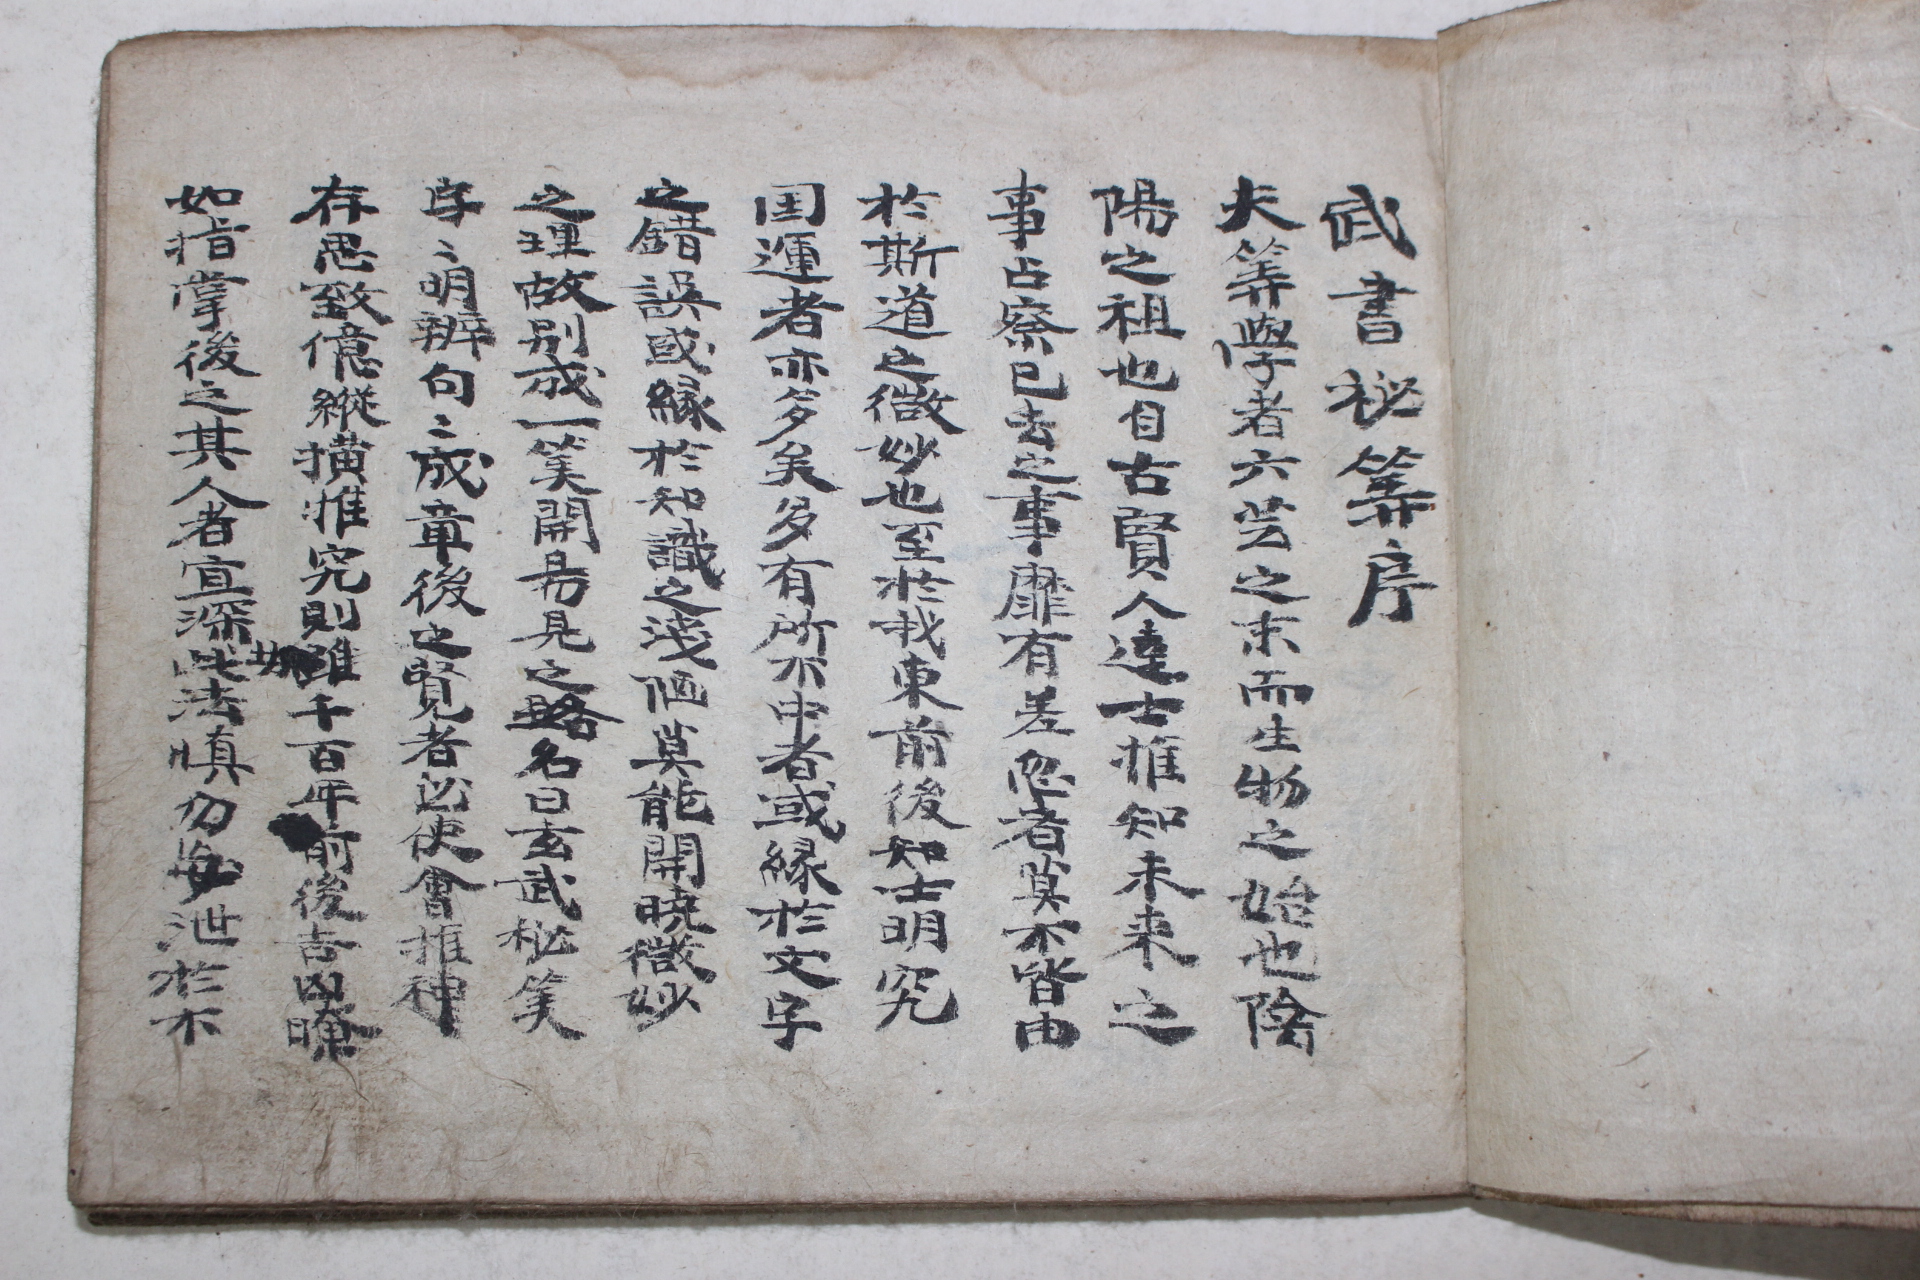 武書秘筭序
夫筭學者六芸之末而生物之始也陰
陽之祖也自古賢人達士推知未来之
事占察已去之事靡有差忒者莫不皆由
於斯道之微妙也至於我東前後知士明究
国運者亦多矣多有所不中者或縁於文字
之錯誤或縁於知識之淺陋莫能開曉微妙
之理故別成一筭開昜見之路名曰玄武秘筭
字〻明辨句〻成章後之賢者必使會推神
存思致億縱横惟究則雖千百年前後吉凶曉
如指掌後之其人者宜深此法慎勿妄泄於不